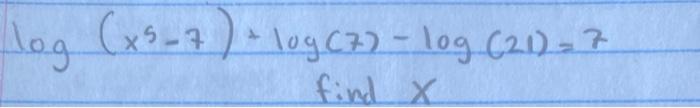 log (x⁵-7) + log(7) - log(21) = 7
find x